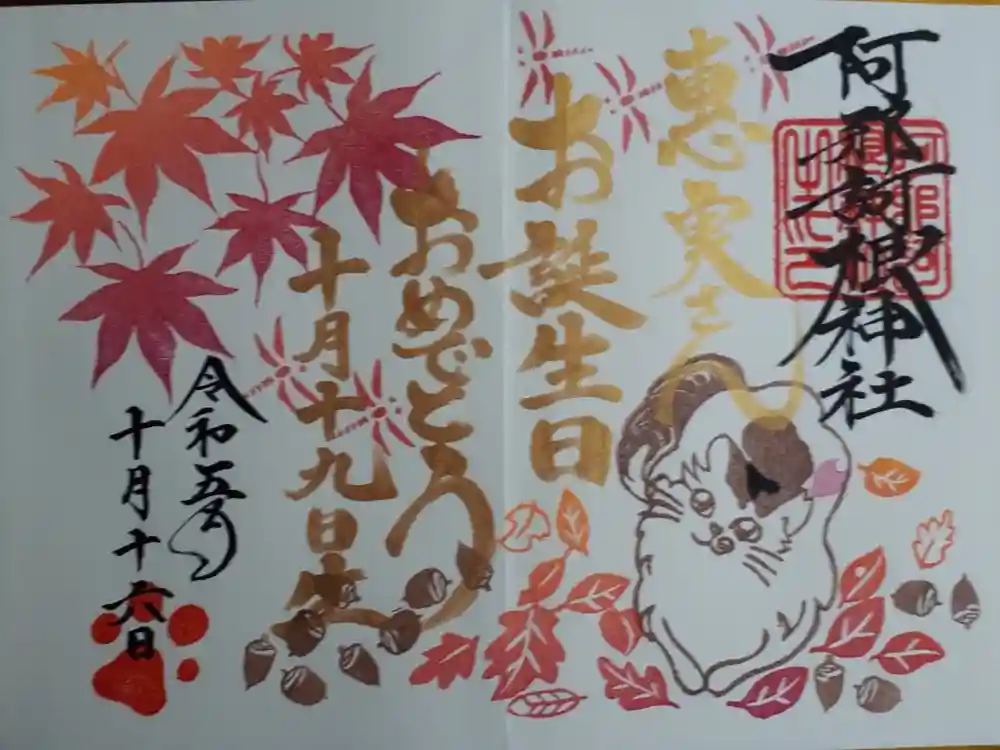 阿那訶根神社
惠実さん
お誕生日
おめでとう
十月十九日生
令和五年
十月十六日